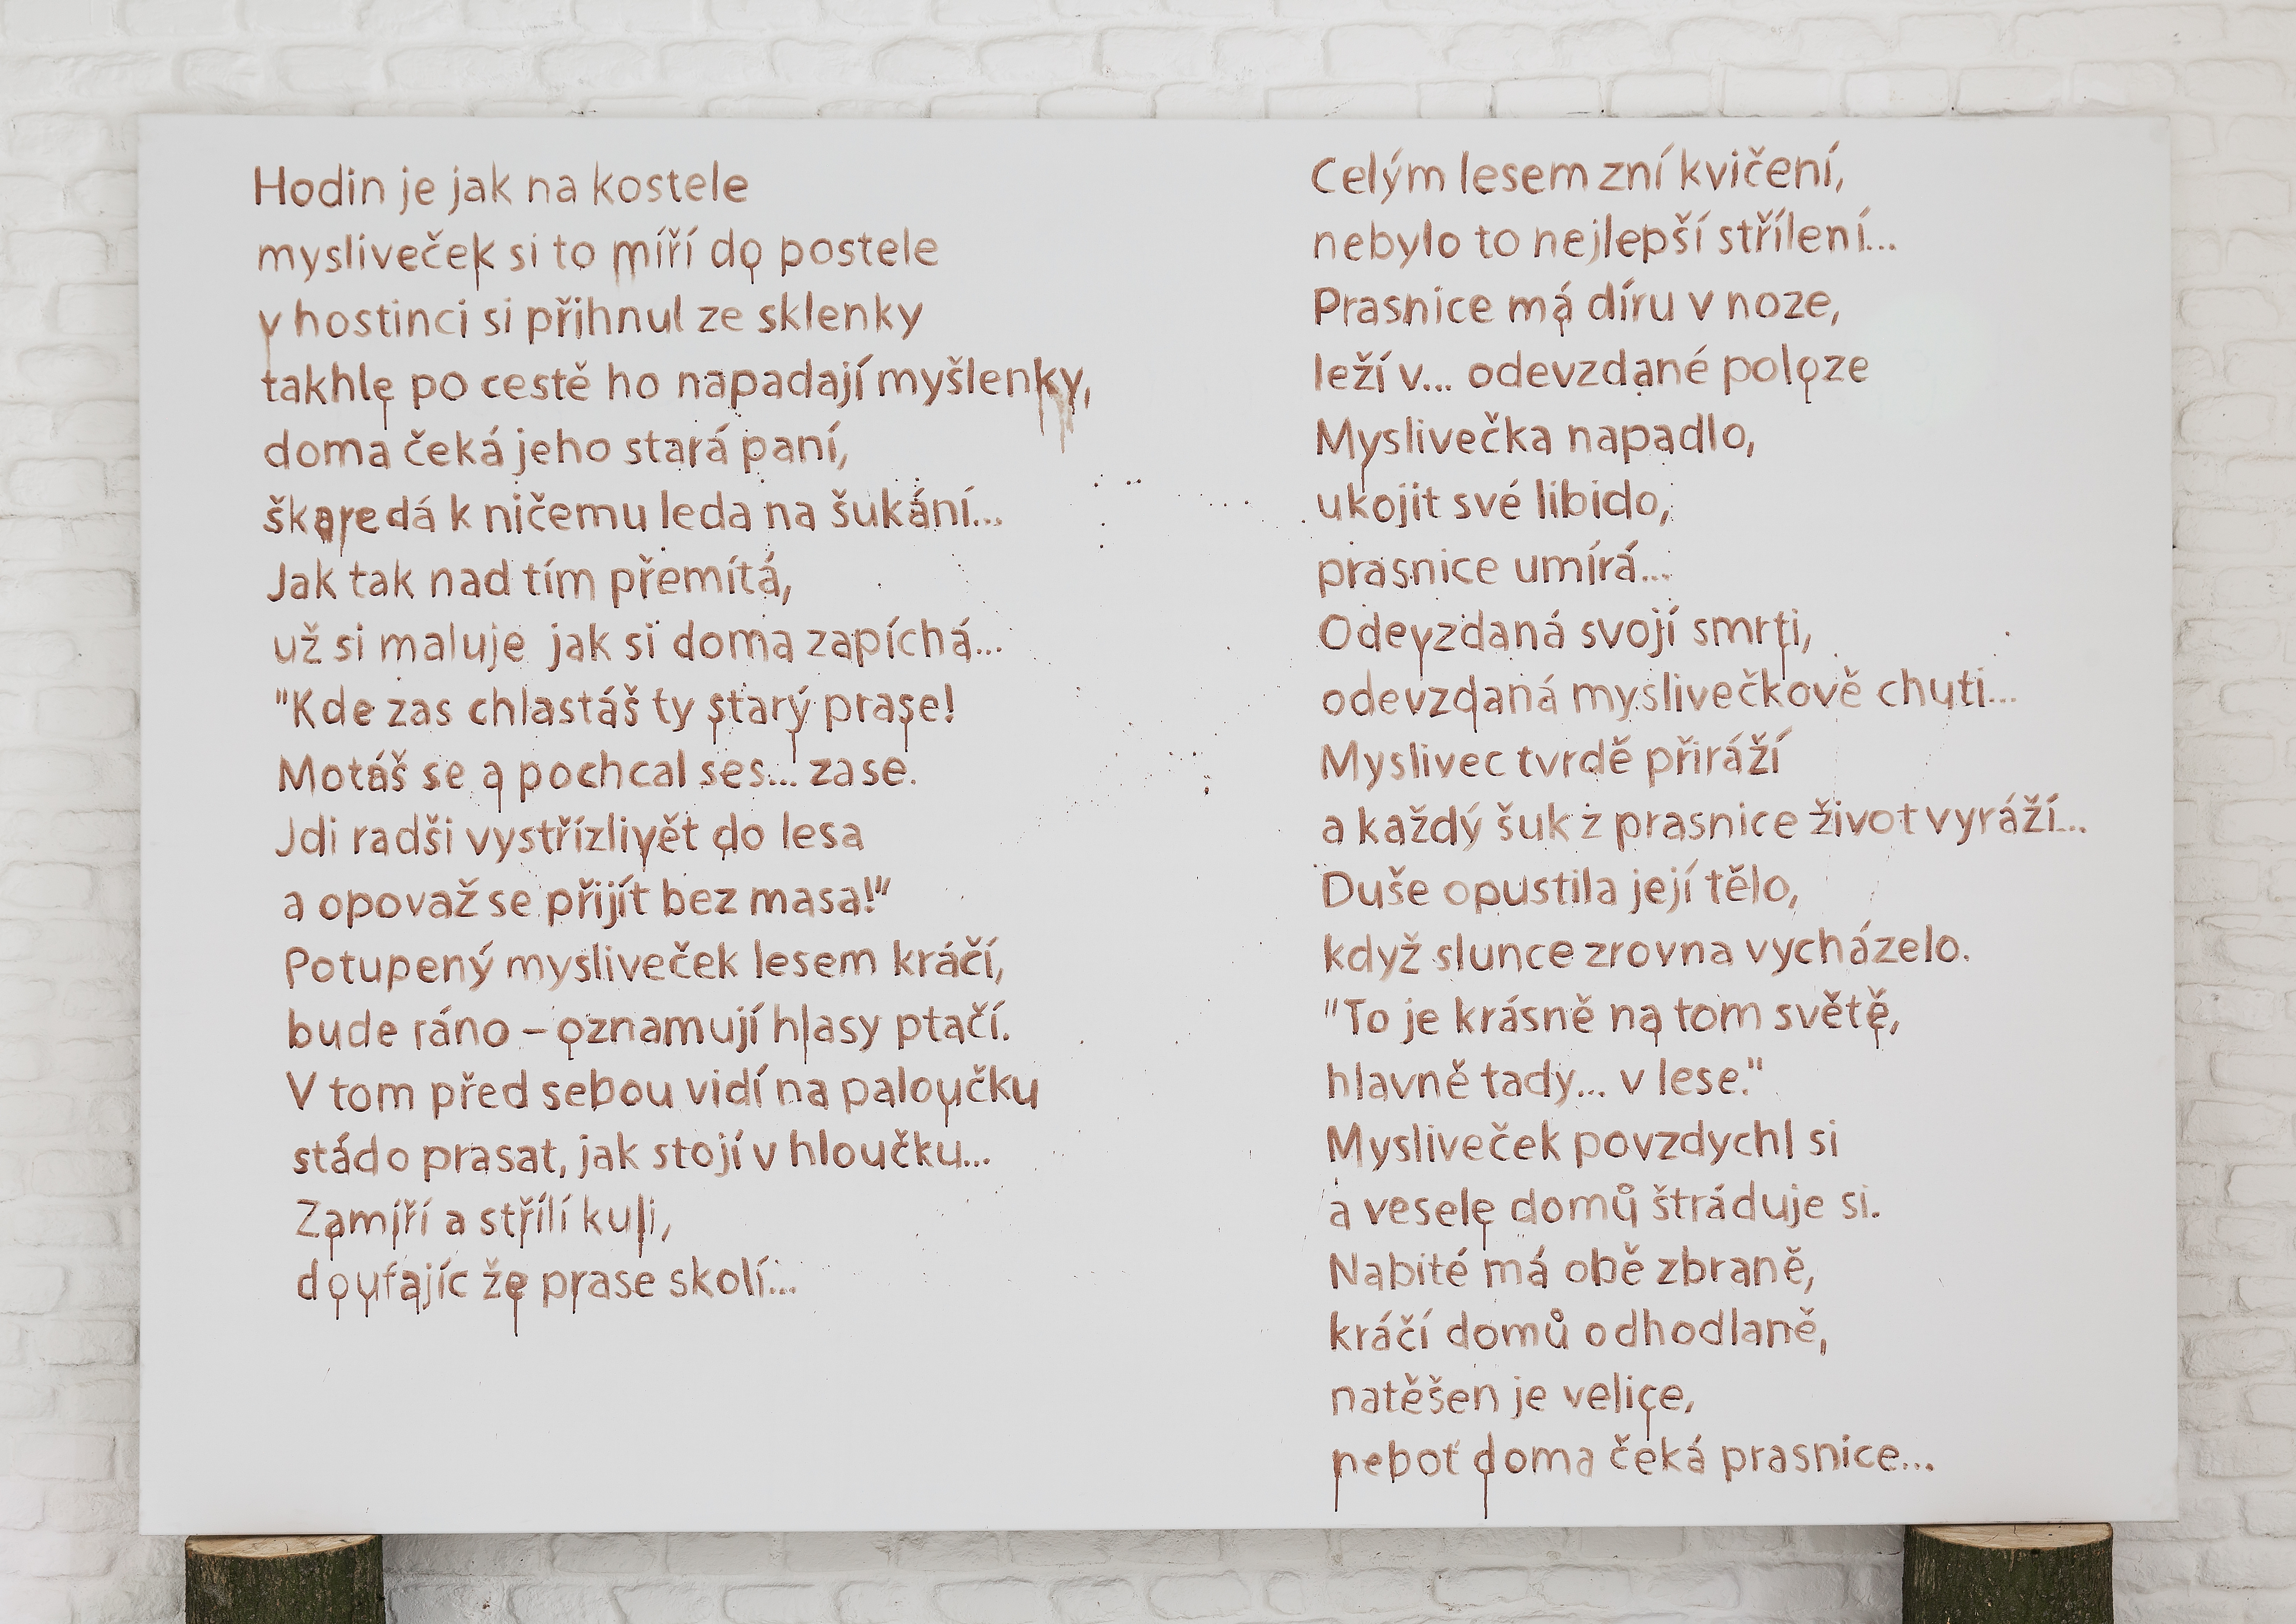 Hodin je jak na kostele
mysliveček si to míří do postele
v hostinci si přihnul ze sklenky
takhle po cestě ho napadají myšlenky,
doma čeká jeho stará paní,
škaredá k ničemu leda na šukání...
Jak tak nad tím přemítá,
už si maluje jak si doma zapíchá...
"Kde zas chlastáš ty starý prase!
Motáš se a pochcal ses... zase.
Jdi radši vystřízlivět do lesa
a opovaž se přijít bez masa!"
Potupený mysliveček lesem kráčí,
bude ráno – oznamují hlasy ptačí.
V tom před sebou vidí na paloučku
stádo prasat, jak stojí v hloučku...
Zamíří a střílí kuli,
doufajíc že prase skolí...
Celým lesem zní kvičení,
nebylo to nejlepší střílení...
Prasnice má díru v noze,
leží v... odevzdané poloze
Myslivečka napadlo,
ukojit své libido,
prasnice umírá...
Odevzdaná svojí smrti,
odevzdaná myslivečkově chuti...
Myslivec tvrdě přiráží
a každý šuk z prasnice život vyráží...
Duše opustila její tělo,
když slunce zrovna vycházelo.
"To je krásně na tom světě,
hlavně tady... v lese."
Mysliveček povzdychl si
a vesele domů štráduje si.
Nabité má obě zbraně,
kráčí domů odhodlaně,
natěšen je velice,
neboť doma čeká prasnice...